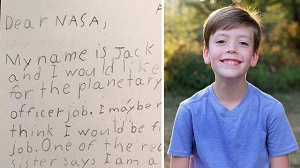 Dear NASA,
My name is Jack
and I would like
for the planetary
officer job. I may be
think I would be fi
job. One of the re
sister says I am a